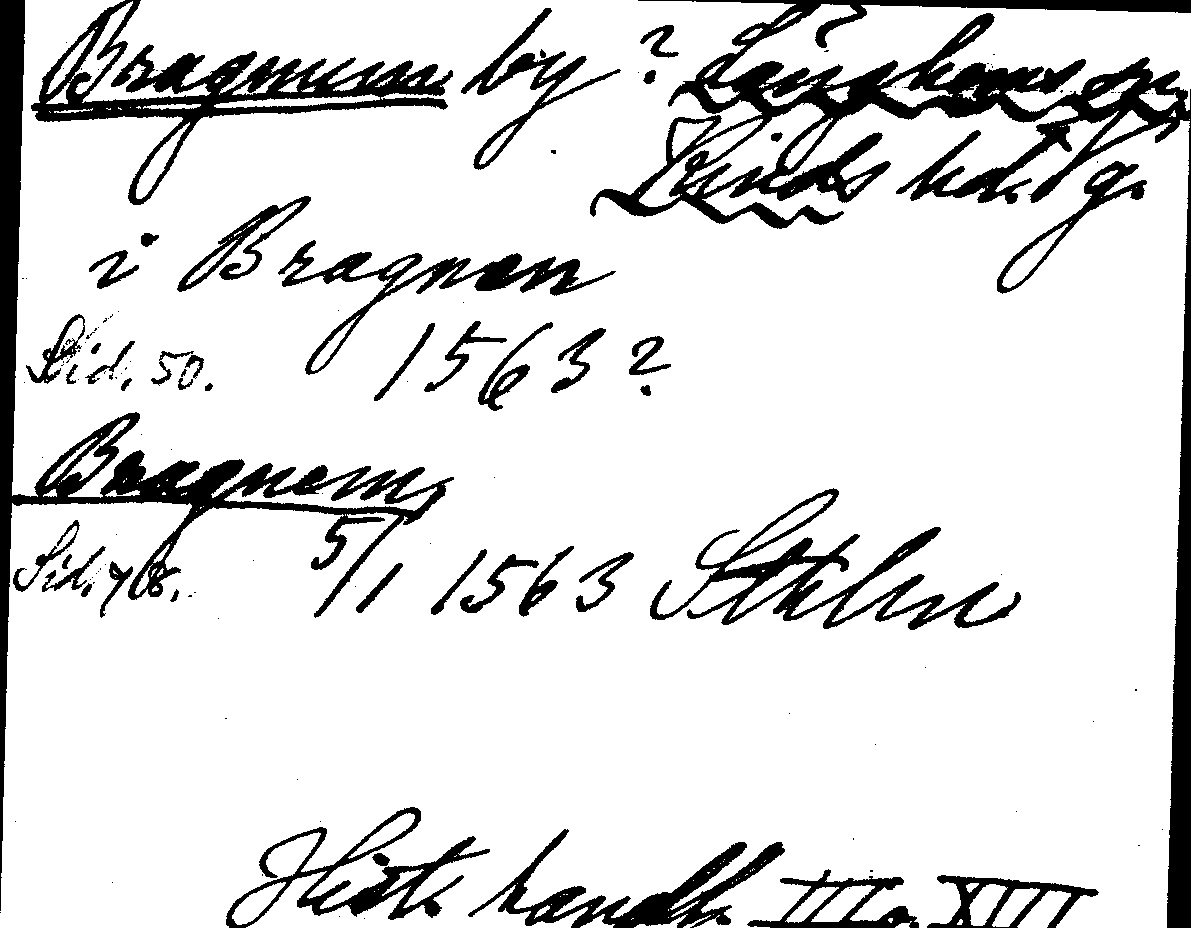 Bragnum by ? Länghems sn,
Kinds hd. Vg.
i Bragnen
Sid. 50. 1563?
Bragnem,
Sid. 768. 5/1 1563 Sthlm
Hist. handl. III o. XIII